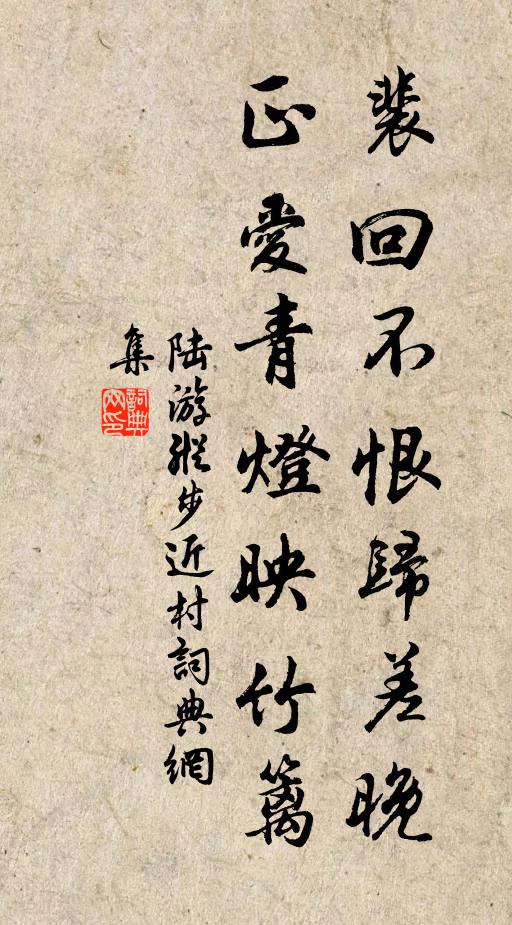 裴回不恨歸差晚
正愛青燈映竹籬
陆游縱步近村詞典網
集
詞典
网印